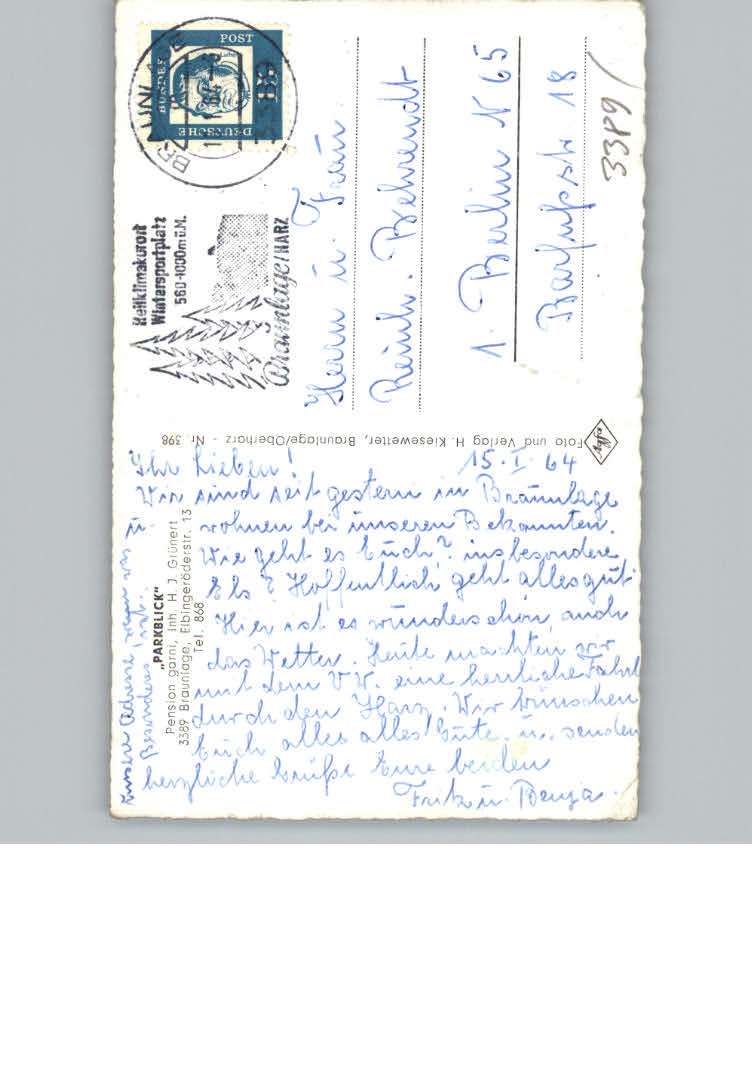 Ihr Lieben! 15.I.64
Wir sind seit gestern in Braunlage
u. wohnen bei unseren Bekannten.
Wie geht es Euch? insbesondere
Els? Hoffentlich geht alles gut.
Hier ist es wunderschön, auch
das Wetter. Heute machten wir
mit dem VW. eine herrliche Fahrt
durch den Harz. Wir wünschen
Euch alles alles Gute u. senden
herzliche Grüße Eure beiden
Fritz u. Benja.
Unsere Adresse, wenn was
Besonderes ist.
„PARKBLICK“
Pension garni, Inh. H. J. Grünert
3389 Braunlage, Elbingeröderstr. 13
Tel. 868
Foto und Verlag H. Kiesewetter, Braunlage/Oberharz - Nr. 398
afbr
DEUTSCHE BUNDESPOST
BRAUNLAGE
Heilklimakurort
Wintersportplatz
560-1000m ü.M.
Braunlage/HARZ
Herrn u. Frau
Reinh. Behrendt
1 Berlin N 65
Barfußstr 18
3389